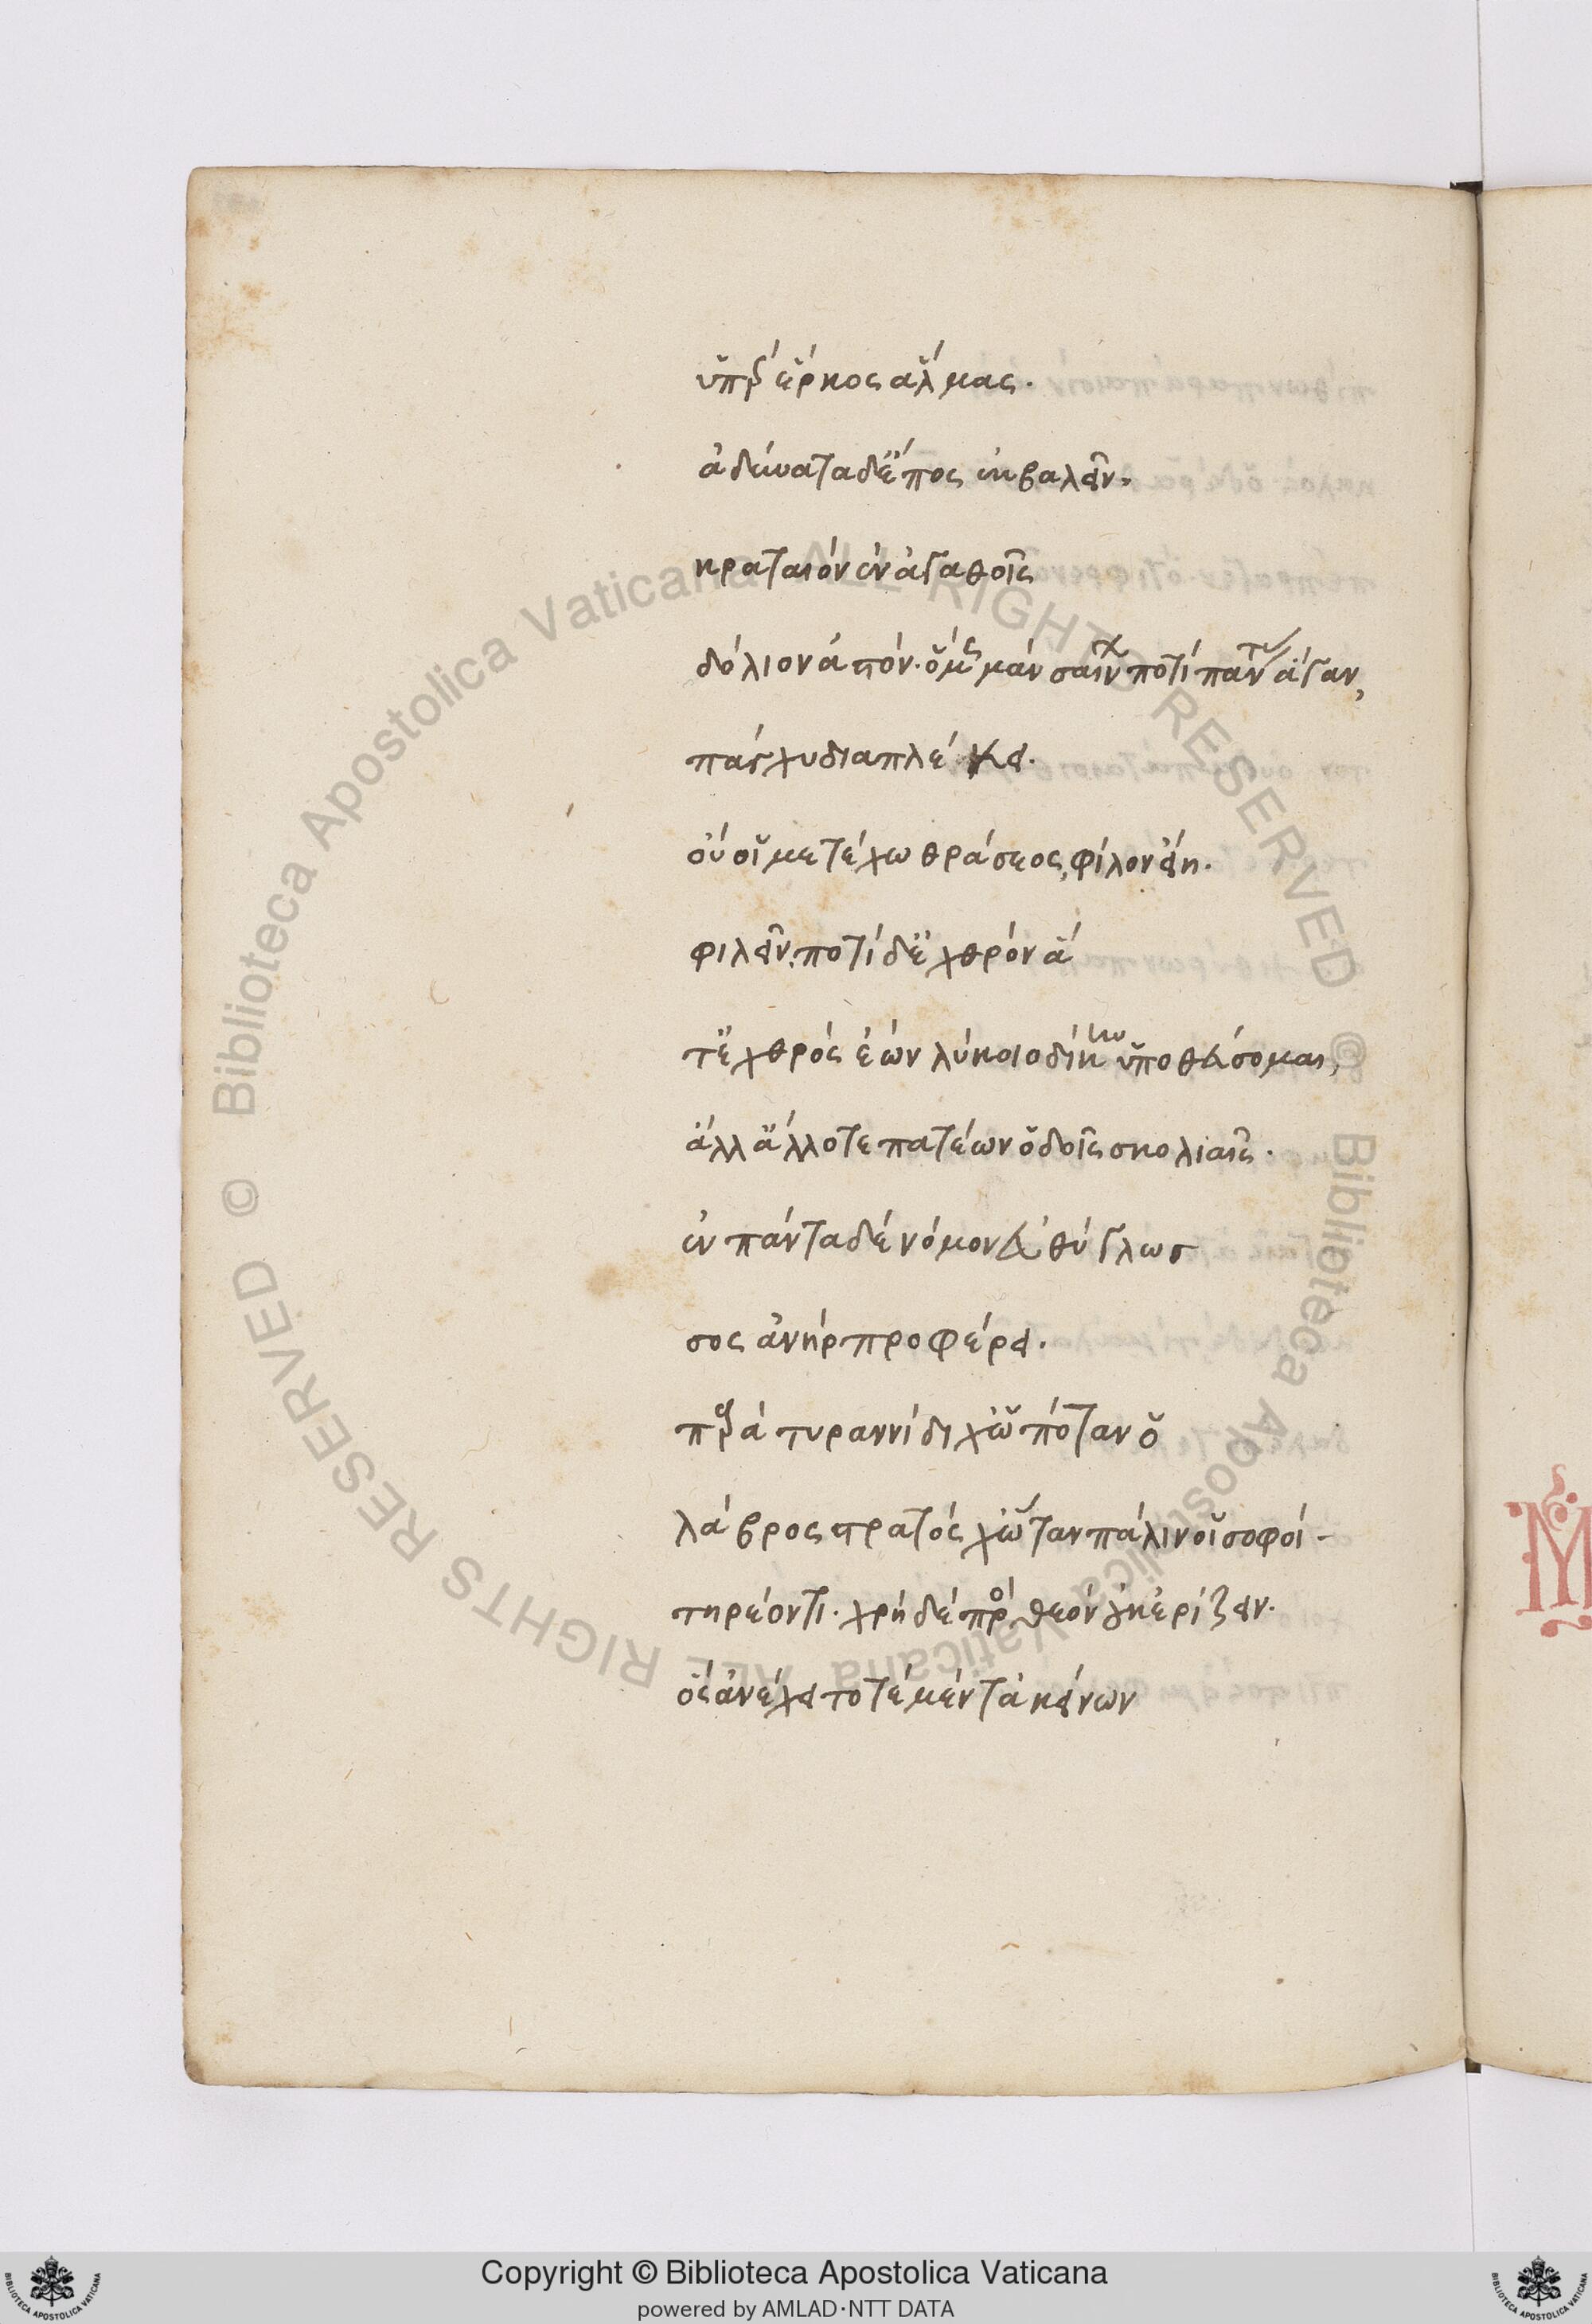 ὑπὲρ ἕρκος ἅλμας.
ἀδύνατα δ' ἔπος ἐκβαλεῖν.
κραταιὸν ἐν ἀγαθοῖς
δόλιον ἀστόν. ὅμως μὰν σαίνων ποτὶ πάντας ἄγαν,
πάγχυ διαπλέκει.
οὔ οἱ μετέχω θράσεος, φίλον εἴη.
φιλεῖν. ποτὶ δ' ἐχθρὸν ἅ
τ' ἐχθρὸς ἐὼν λύκοιο δίκην ὑποθεύσομαι,
ἄλλ' ἄλλοτε πατέων ὁδοῖς σκολιαῖς.
ἐν πάντα δὲ νόμον εὐθύγλωσ
σος ἀνὴρ προφέρει.
παρὰ τυραννίδι χὠπόταν ὁ
λάβρος στρατός χὥταν πάλιν οἱ σοφοί
τηρέοντι. χρὴ δὲ πρὸς θεὸν οὐκ ἐρίζειν.
ὃς ἀνέχει τοτὲ μὲν τὰ κείνων
Copyright © Biblioteca Apostolica Vaticana
powered by AMLAD·NTT DATA